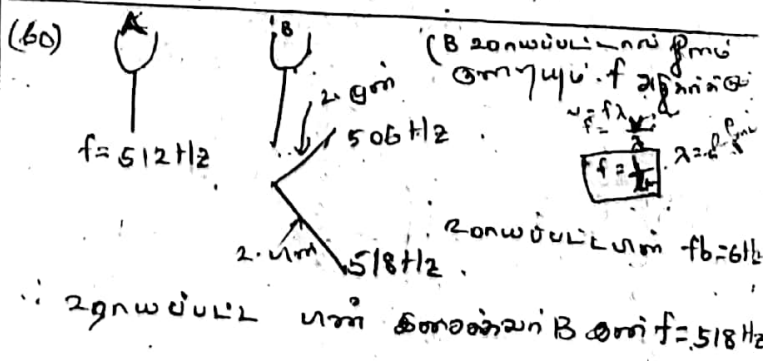 (60) A B (B உராயப்பட்டால் நீளம்
குறையும். f அதிகரிக்கும்
2. முன்
506 Hz
v = fλ
f = 512 Hz
2. பின்
518 Hz.
உராயப்பட்டபின் fb = 6Hz
∴ உராயப்பட்ட பின் இசைக்கவர் B இன் f = 518 Hz